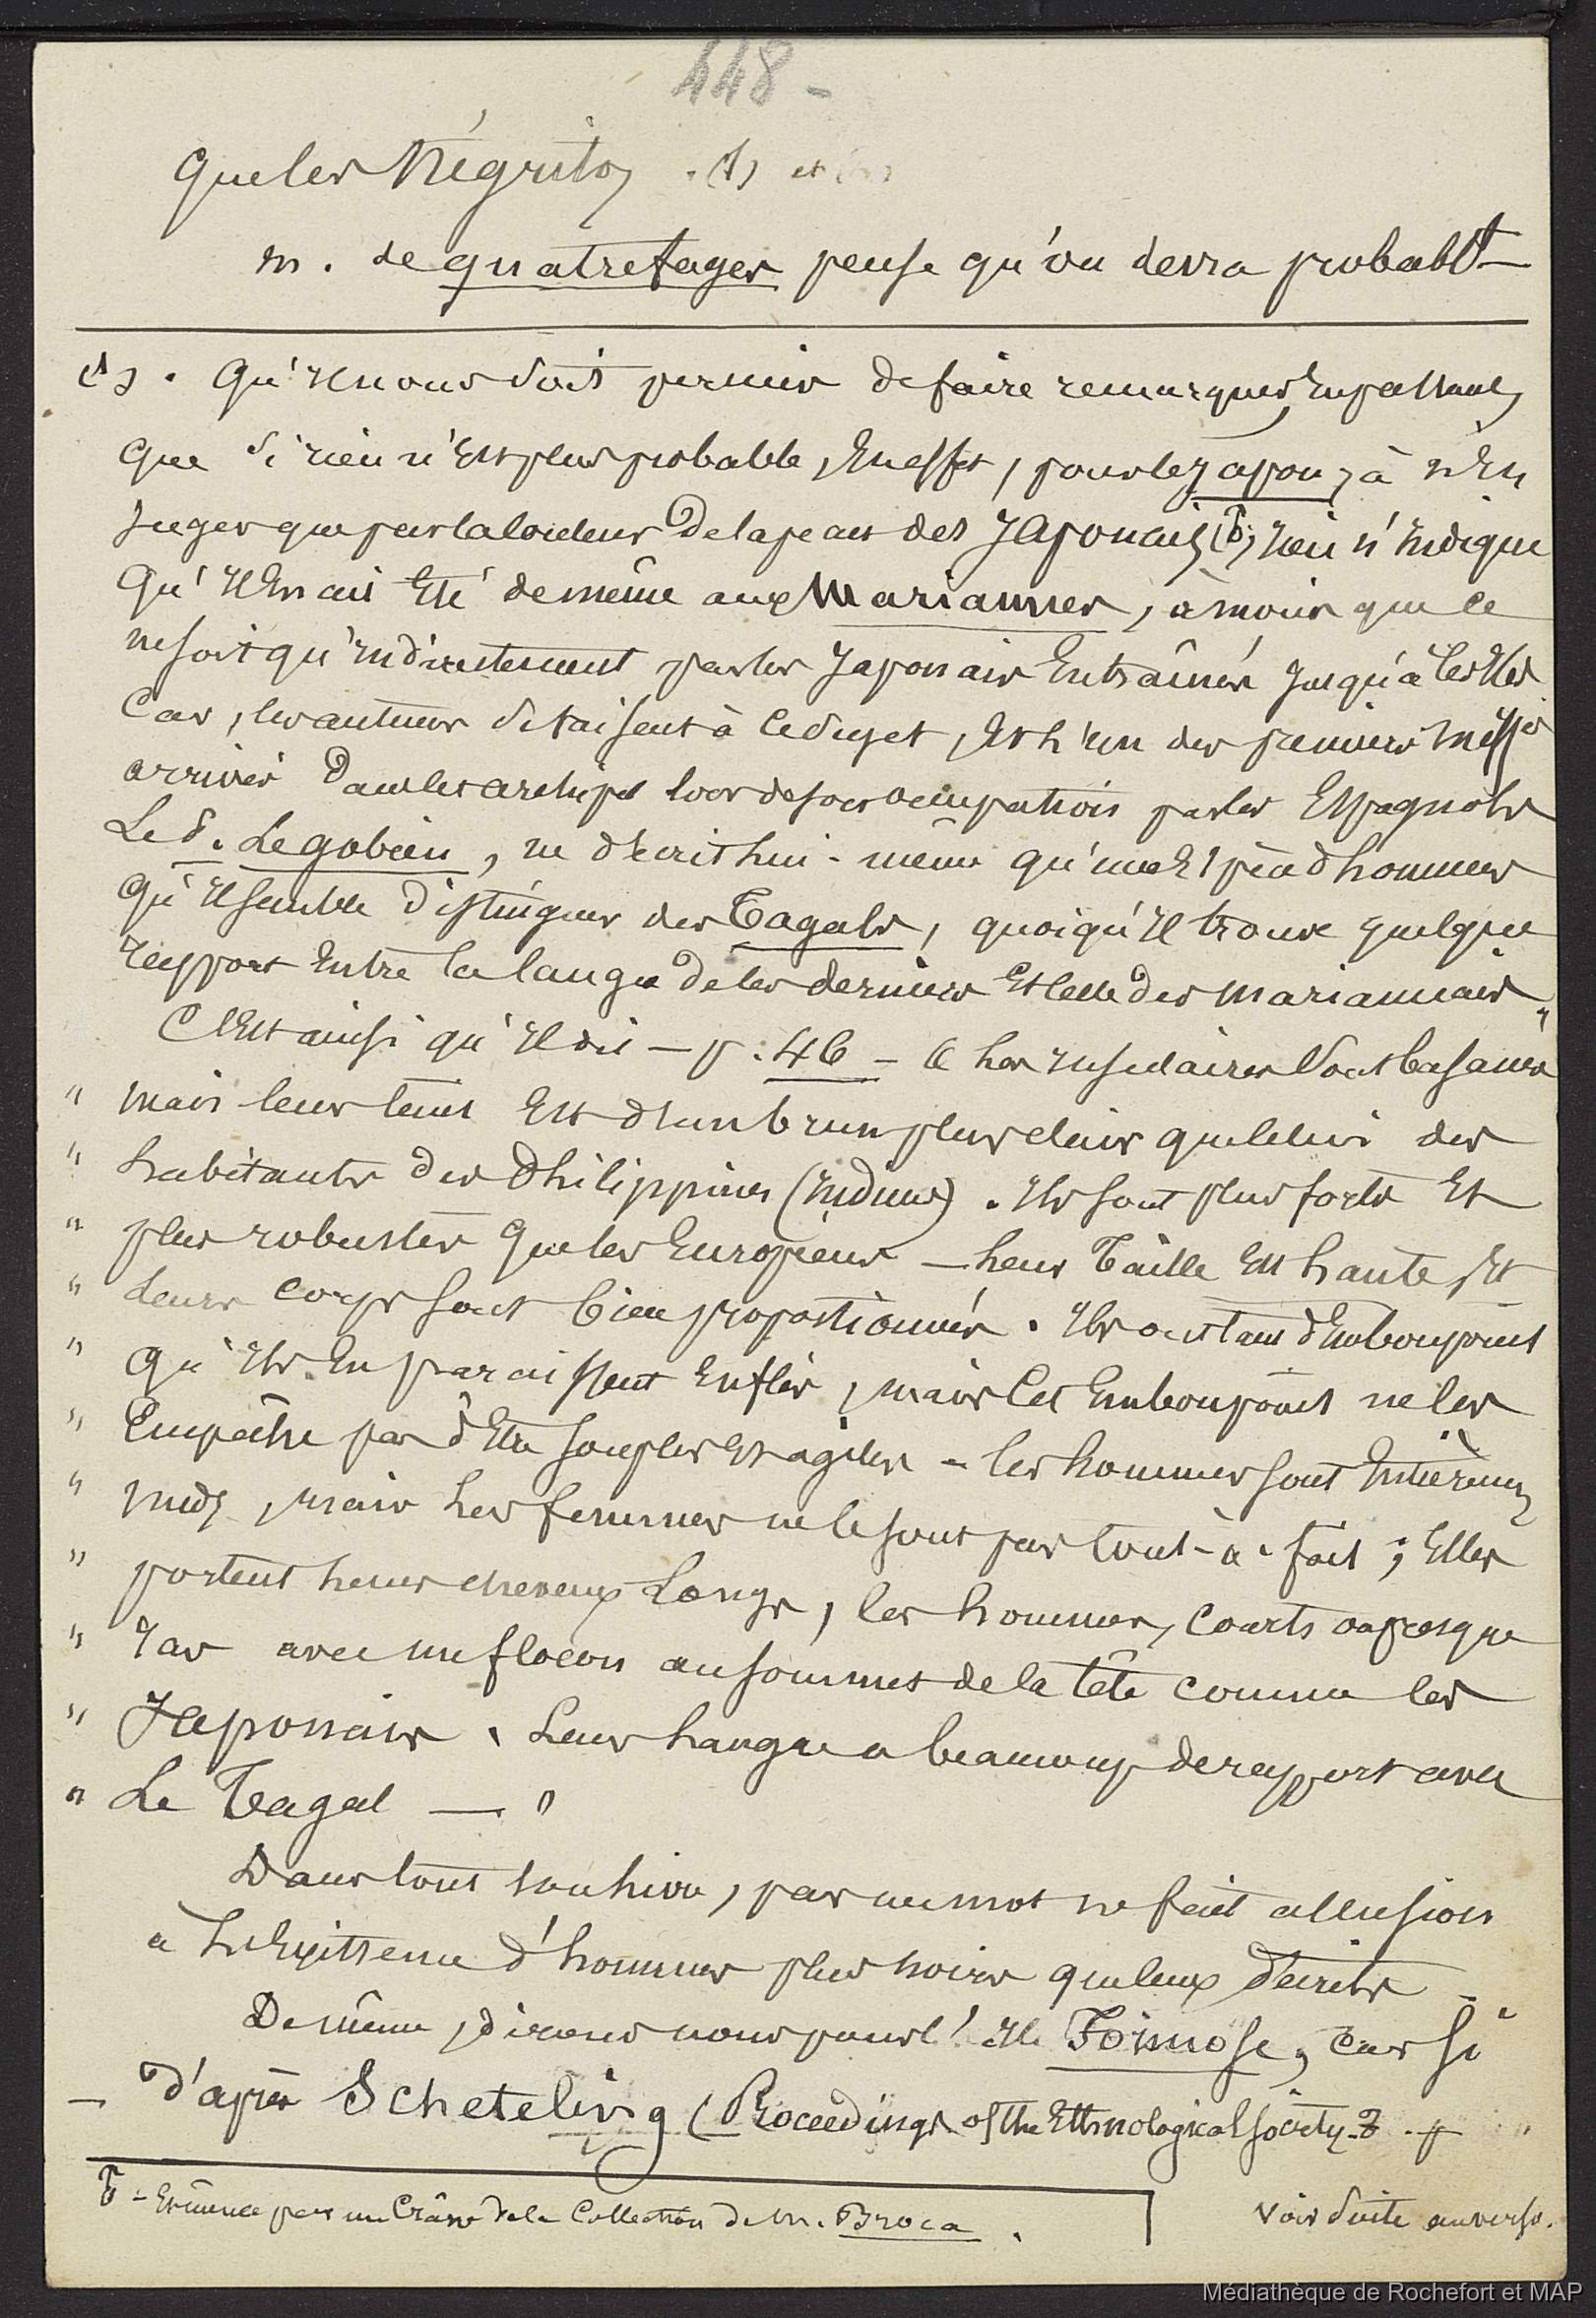 448 -
que les Négritos . (1) et
M. de quatrefages pense qu'on devra probablt
(1) . Qu'il nous soit permis de faire remarquer, en passant,
que si rien n'est plus probable, en effet, pour le Japon, à n'en
juger que par la couleur de la peau des Japonais, rien n'indique
qu'il en ait été de même aux Mariannes, à moins que ce
ne soit qu'indirectement par les Japonais entraînés jusqu'à ces îles
Car, les auteurs se taisent à ce sujet, et l'un des premiers
arrivés dans les archipel lors de son occupation par les Espagnols
Le P. Legobien, ne décrit lui-même qu'une espèce d'hommes
qu'il semble distinguer des Tagals, quoiqu'il trouve quelque
rapport entre la langue de ces derniers et celle des Mariannais.
C'est ainsi qu'il dit — p. 46 - « Les insulaires sont basanés
" mais leur teint est d'un brun plus clair que celui des
" habitants des Philippines (Indiens). Ils sont plus forts et
" plus robustes que les Européens — Leur taille est haute, et
" leurs corps sont bien proportionnés. Ils ont tant d'embonpoint
" qu'ils en paraissent enflés, mais cet embonpoint ne les
" empêche pas d'être souples et agiles - les hommes sont entièremt
" nuds, mais les femmes ne le sont pas tout-à-fait ; elles
" portent leurs cheveux longs, les hommes, courts ou presque
" ras avec un flocon au sommet de la tête comme les
" Japonais. Leur langue a beaucoup de rapport avec
" Le Tagal — "
Dans tout son livre, pas un mot ne fait allusion
à l'existence d'hommes plus noirs que ceux décrits -
De même, dirons nous pour l'île Formose, car si
— d'après Schetelivg (Proceedings of the Ethnological Society. 2 . p "
- Examiné par un Crâne de la Collection de M. Broca .
Voir suite au verso.
Médiathèque de Rochefort et MAP